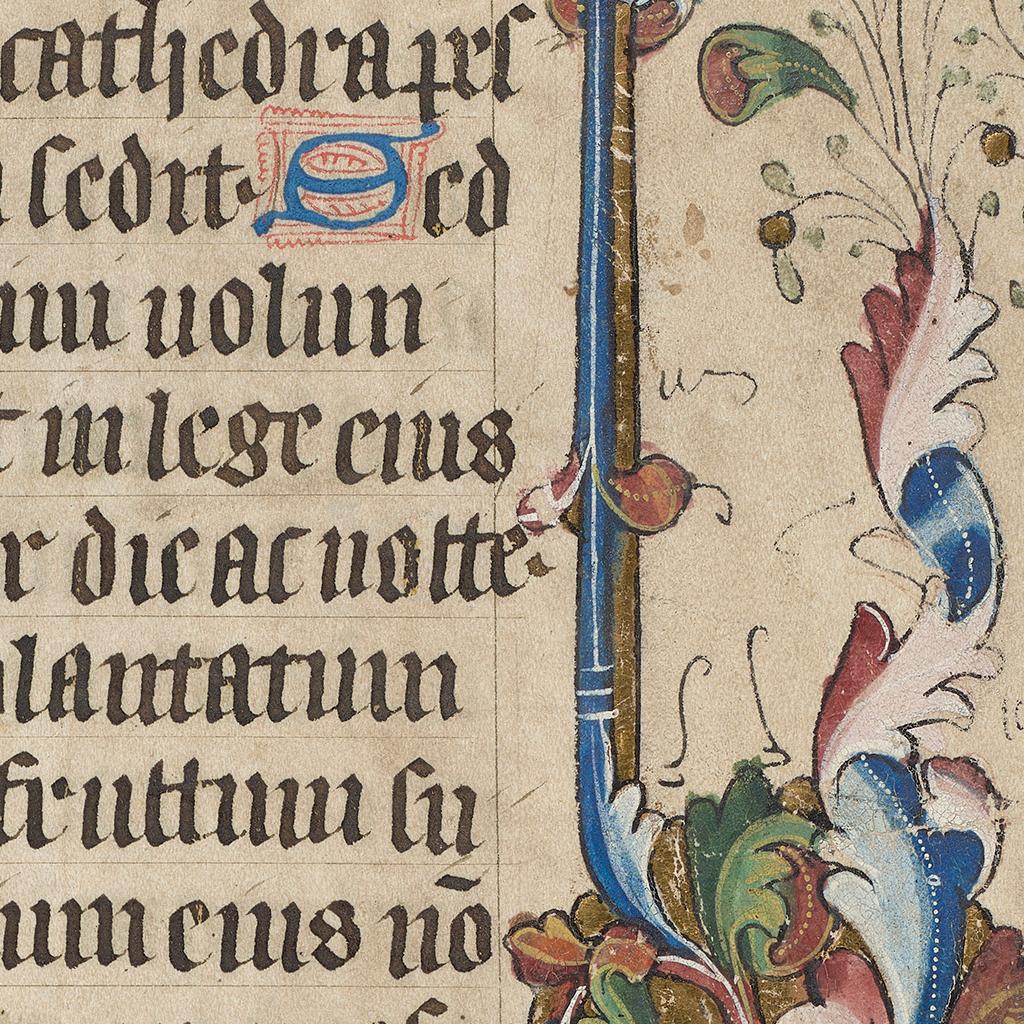 cathedra pes
sedit. Sed
uolun
in lege eius
die ac nocte.
lantatum
fructum su
eius nō